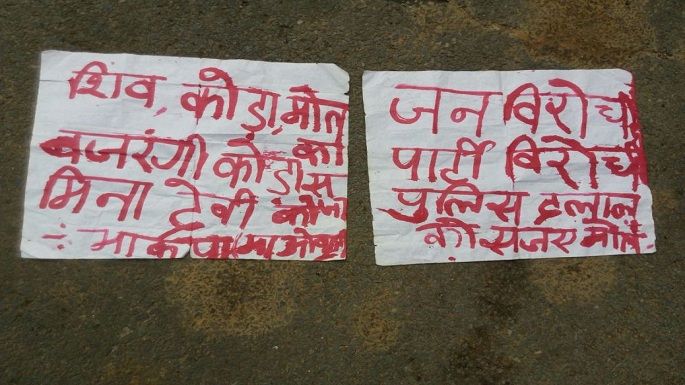 शिव, कोड़ा, मौत
बजरंगी कोड़ा को
मिना देवी
जन विरोधी
पार्टी विरोधी
पुलिस दलाल
को सजाए मौत